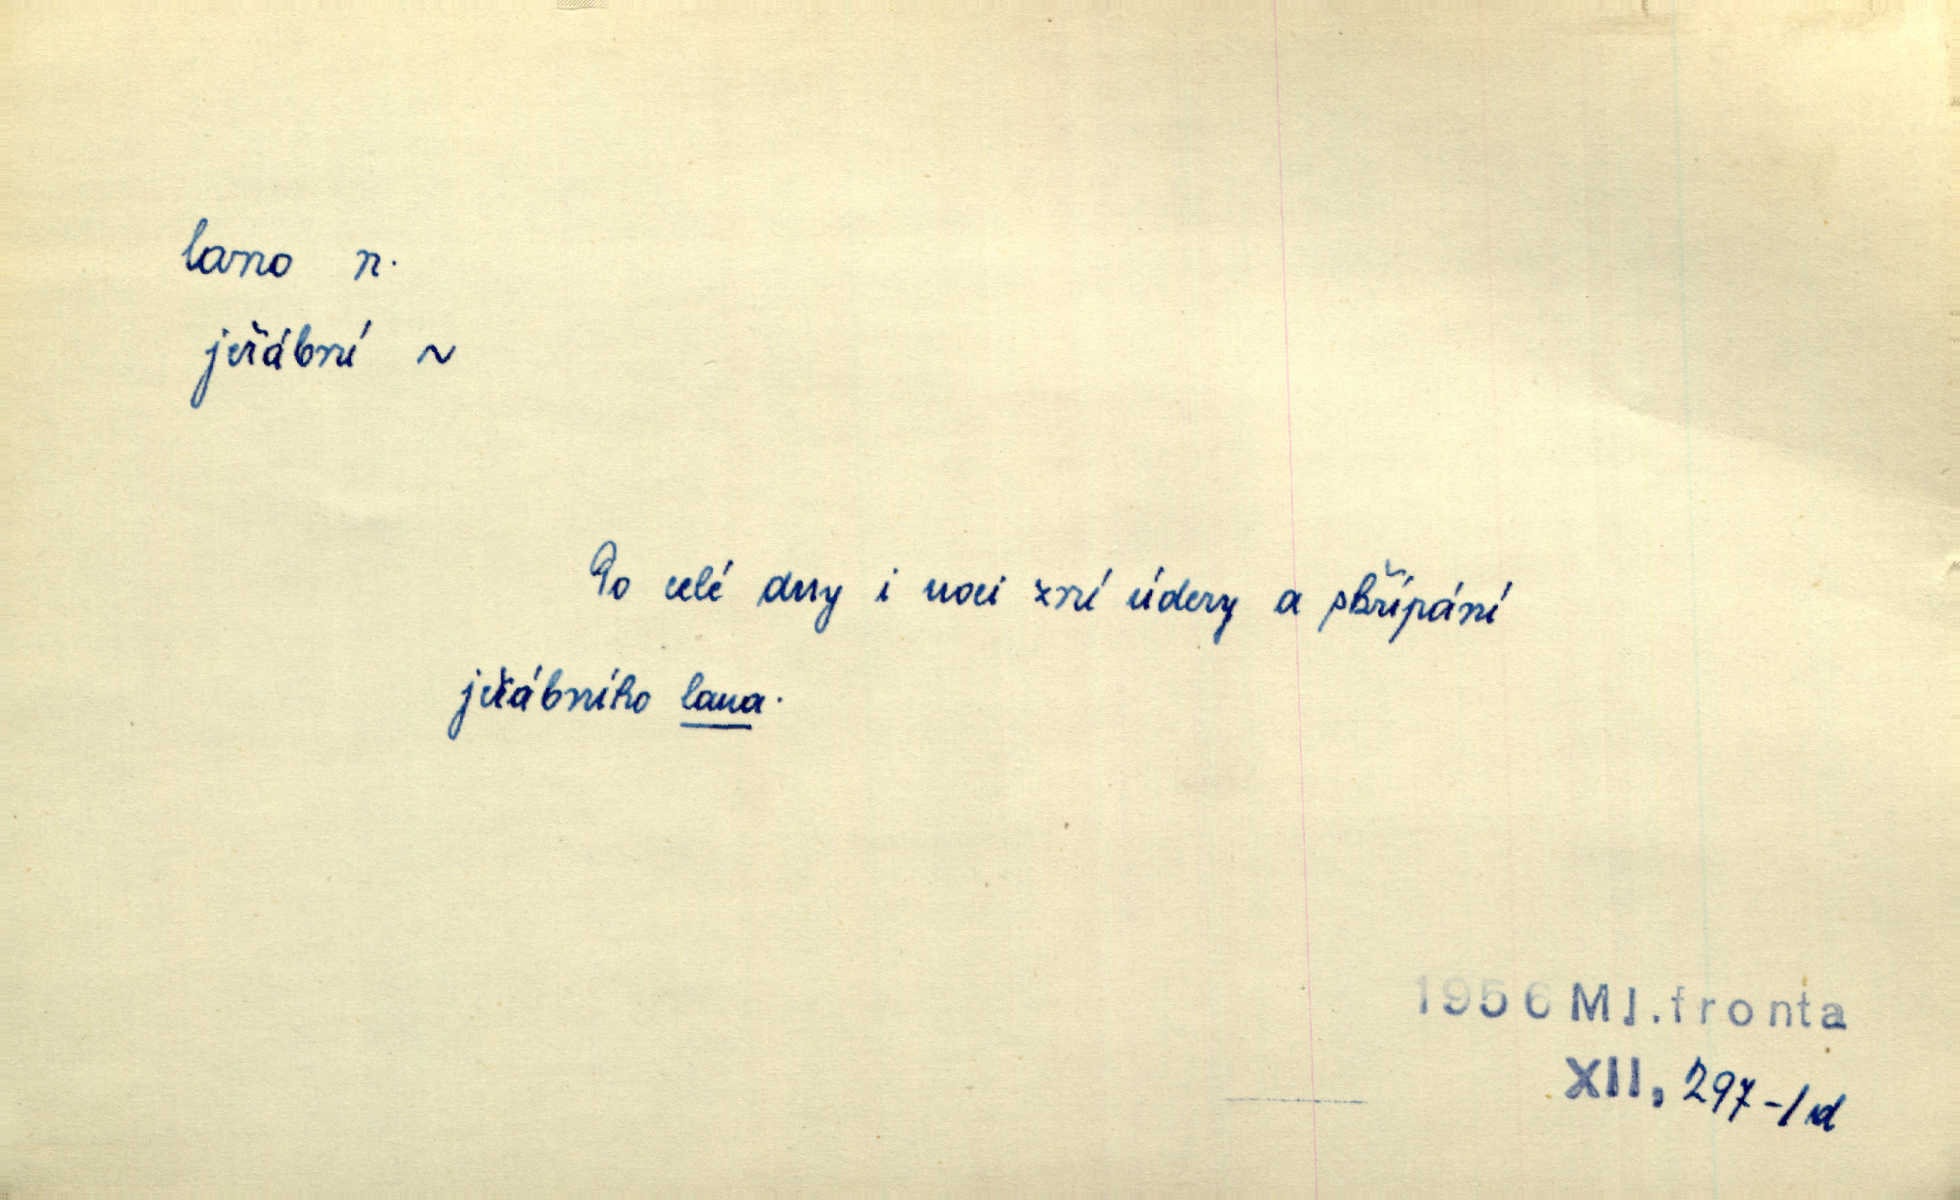 lano n.
jeřábní ~
Po celé dny i noci zní údery a skřípání
jeřábního lana.
1956 Ml. fronta
XII, 297-/d